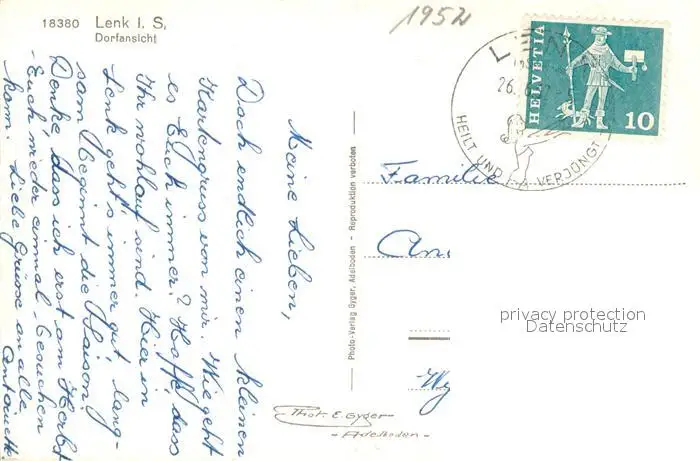 18380 Lenk I. S,
Dorfansicht
1952
Meine Lieben,
Doch endlich einen kleinen
Kartengruss von mir. Wie geht
es Euch immer? Hoff, dass
Ihr wohlauf sind. Hier in
Lenk geht's immer gut, lang-
sam beginnt die Saison.
Denke, dass ich erst am Herbst
Euch wieder einmal besuchen
komm. Liebe Grüsse an alle
Antoinette
Photo-Verlag Gyger, Adelboden - Reproduktion verboten
Phot. E. Gyger
- Adelboden -
HELVETIA
10
26.
HEILT UND VERJÜNGT
Familie
privacy protection
Datenschutz